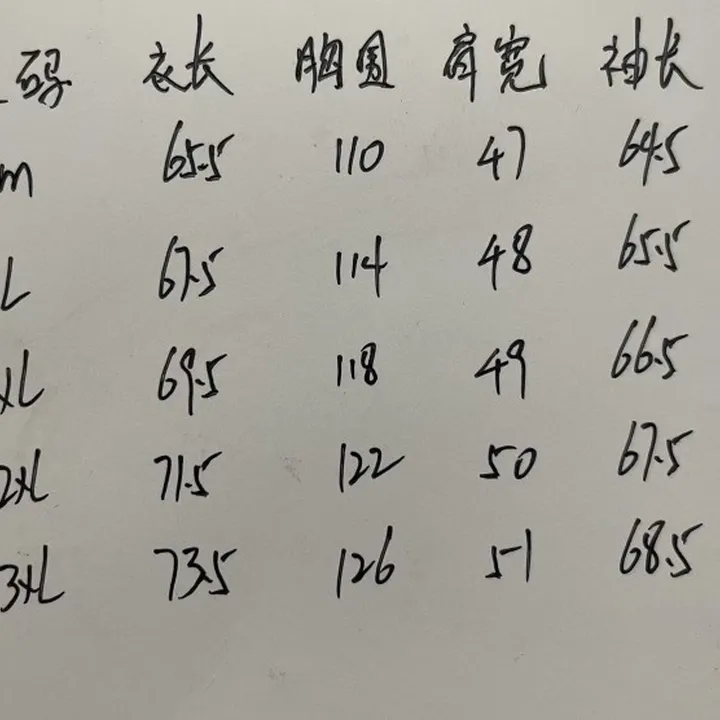 码 衣长 胸围 肩宽 袖长
m 65.5 110 47 64.5
L 67.5 114 48 65.5
XL 69.5 118 49 66.5
2XL 71.5 122 50 67.5
3XL 73.5 126 51 68.5